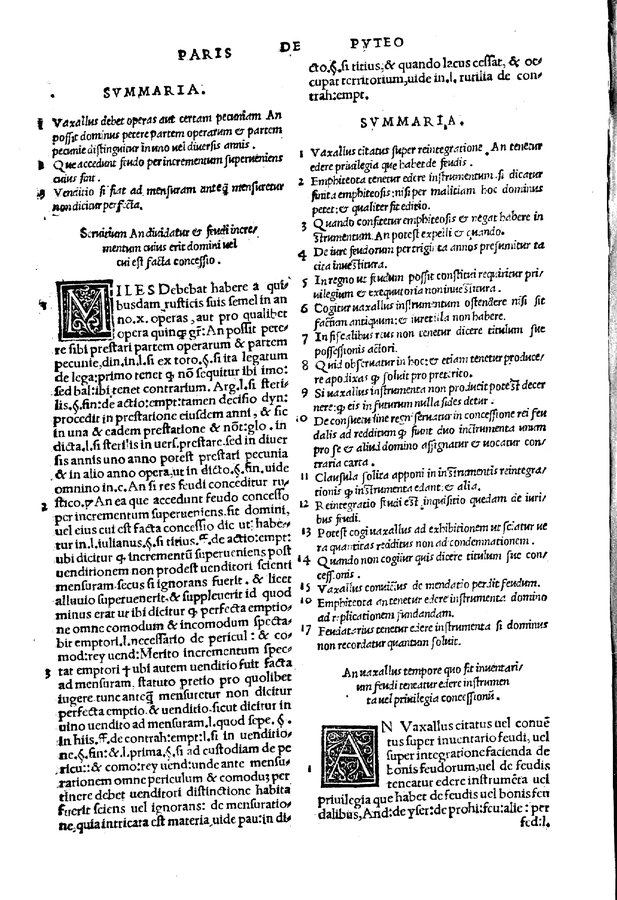 PARIS DE PVTEO
SVMMARIA.
1 Vaxallus debet operas aut certam pecuniam An
possit dominus petere partem operarum & partem
pecunie distinguitur in uno uel diuersis annis.
2 Que accedunt feudo per incrementum superueniens
cuius sint.
3 Venditio si fiat ad mensuram anteq̃ mensuretur
non dicitur perfecta.
Seruitium An diuidatur & feudi incre/
mentum cuius erit domini uel
cui est facta concessio.
MILES Debebat habere a qui/
busdam rusticis suis semel in an
no .x. operas, aut pro qualibet
opera quinq; gr̃: An possit pete/
re sibi prestari partem operarum & partem
pecunie, din. in .l. si ex toro. §. si ita legatum
de lega: primo tenet ꝙ nõ sequitur ibi imo:
sed bal: ibi tenet contrarium. Arg .l. si steri/
lis. §. fin: de actio: empt: tamen decisio dyn:
procedit in prestatione eiusdem anni, & sic
in una & cadem prestatione & nõt: glo. in
dicta .l. si sterilis in uers. prestare. sed in diuer
sis annis uno anno potest prestari pecunia
& in alio anno opera, ut in dicto. §. fin. uide
omnino in .c. An si res feudi conceditur ru/
2 stico. ℞ An ea que accedunt feudo concesso
per incrementum superueniens sit domini,
uel eius cui est facta concessio dic ut: habe/
tur in .l. iulianus. §. si titius. ff. de actio: empt:
ubi dicitur ꝙ incrementũ superueniens post
uenditionem non prodest uenditori scienti
mensuram secus si ignorans fuerit. & licet
alluuio superuenerit & suppleuerit id quod
minus erat ut ibi dicitur ꝙ perfecta emptio/
ne omne comodum & incomodum specta/
bit emptori .l. necessario de pericul: & co/
mod: rey uend: Merito incrementum spec/
3 tat emptori † ubi autem uenditio fuit facta
ad mensuram, statuto pretio pro quolibet
iugere tunc anteq̃ mensuretur non dicitur
perfecta emptio. & uenditio sicut dicitur in
uino uendito ad mensuram .l. quod sepe. §.
in hiis. ff. de contrah: empt: .l. si in uenditio/
ne. §. fin: & .l. prima. §. si ad custodiam de pe
ricu:: & como: rey uend: unde ante mensu/
rationem omne periculum & comodũ per
tinere debet uenditori distinctione habita
fuerit sciens uel ignorans: de mensuratio/
ne, quia intricata est materia, uide pau: in di/
cto. §. si titius, & quando lacus cessat, & oc/
cupat territorium, uide in .l. rutilia de con/
trah: empt.
SVMMARIA.
1 Vaxallus citatus super reintegratione. An tenetur
edere priuilegia que habet de feudis.
2 Emphiteota tenetur edere instrumentum. si dicatur
finita emphiteosis: nisi per malitiam hoc dominus
petet: & qualiter fit editio.
3 Quando confitetur emphiteosis & negat habere in
strumentum. An potest expelli & quando.
4 De iure feudorum per triginta annos presumitur ta
cita inuestitura.
5 In regno ut feudum possit constitui requiritur pri/
uilegium & exequutoria non inuestitura.
6 Cogitur uaxallus instrumentum ostendere nisi sit
factum antiquum: & iure illa non habere.
7 In fiscalibus reus non tenetur dicere titulum sue
possessionis actori.
8 Quid obseruatur in hoc: & etiam tenetur produce/
re apodixas ꝙ soluit pro preterito.
9 Si uaxallus instrumenta non producit potest decer
nere: ꝙ eis in futurum nulla fides detur.
10 De consuetudine regni seruatur in concessione rei feu
dalis ad redditum ꝙ fiunt duo instrumenta unum
pro se & aliud domino assignatur & uocatur con/
traria carta.
11 Clausula solita apponi in instrumentis reintegra/
tionis ꝙ instrumenta edant: & alia.
12 Reintegratio feudi est inquisitio quedam de iuri/
bus feudi.
13 Potest cogi uaxallus ad exhibitionem ut sciatur ue
ra quantitas redditus non ad condemnationem.
14 Quando non cogitur quis dicere titulum sue con/
cessionis.
15 Vaxallus conuictus de mendatio perdit feudum.
10 Emphiteota an tenetur edere instrumenta domino
ad replicationem fundandam.
17 Feudatarius tenetur edere instrumenta si dominus
non recordatur quantum soluit.
An uaxallus tempore quo fit inuentari/
um feudi teneatur edere instrumen
ta uel priuilegia concessionis.
1 AN Vaxallus citatus uel conuẽ
tus super inuentario feudi, uel
super integratione facienda de
bonis feudorum, uel de feudis
teneatur edere instrumẽta uel
priuilegia que habet de feudis uel bonis feu
dalibus, And: de yser: de prohi: feu: alie: per
fed: l.